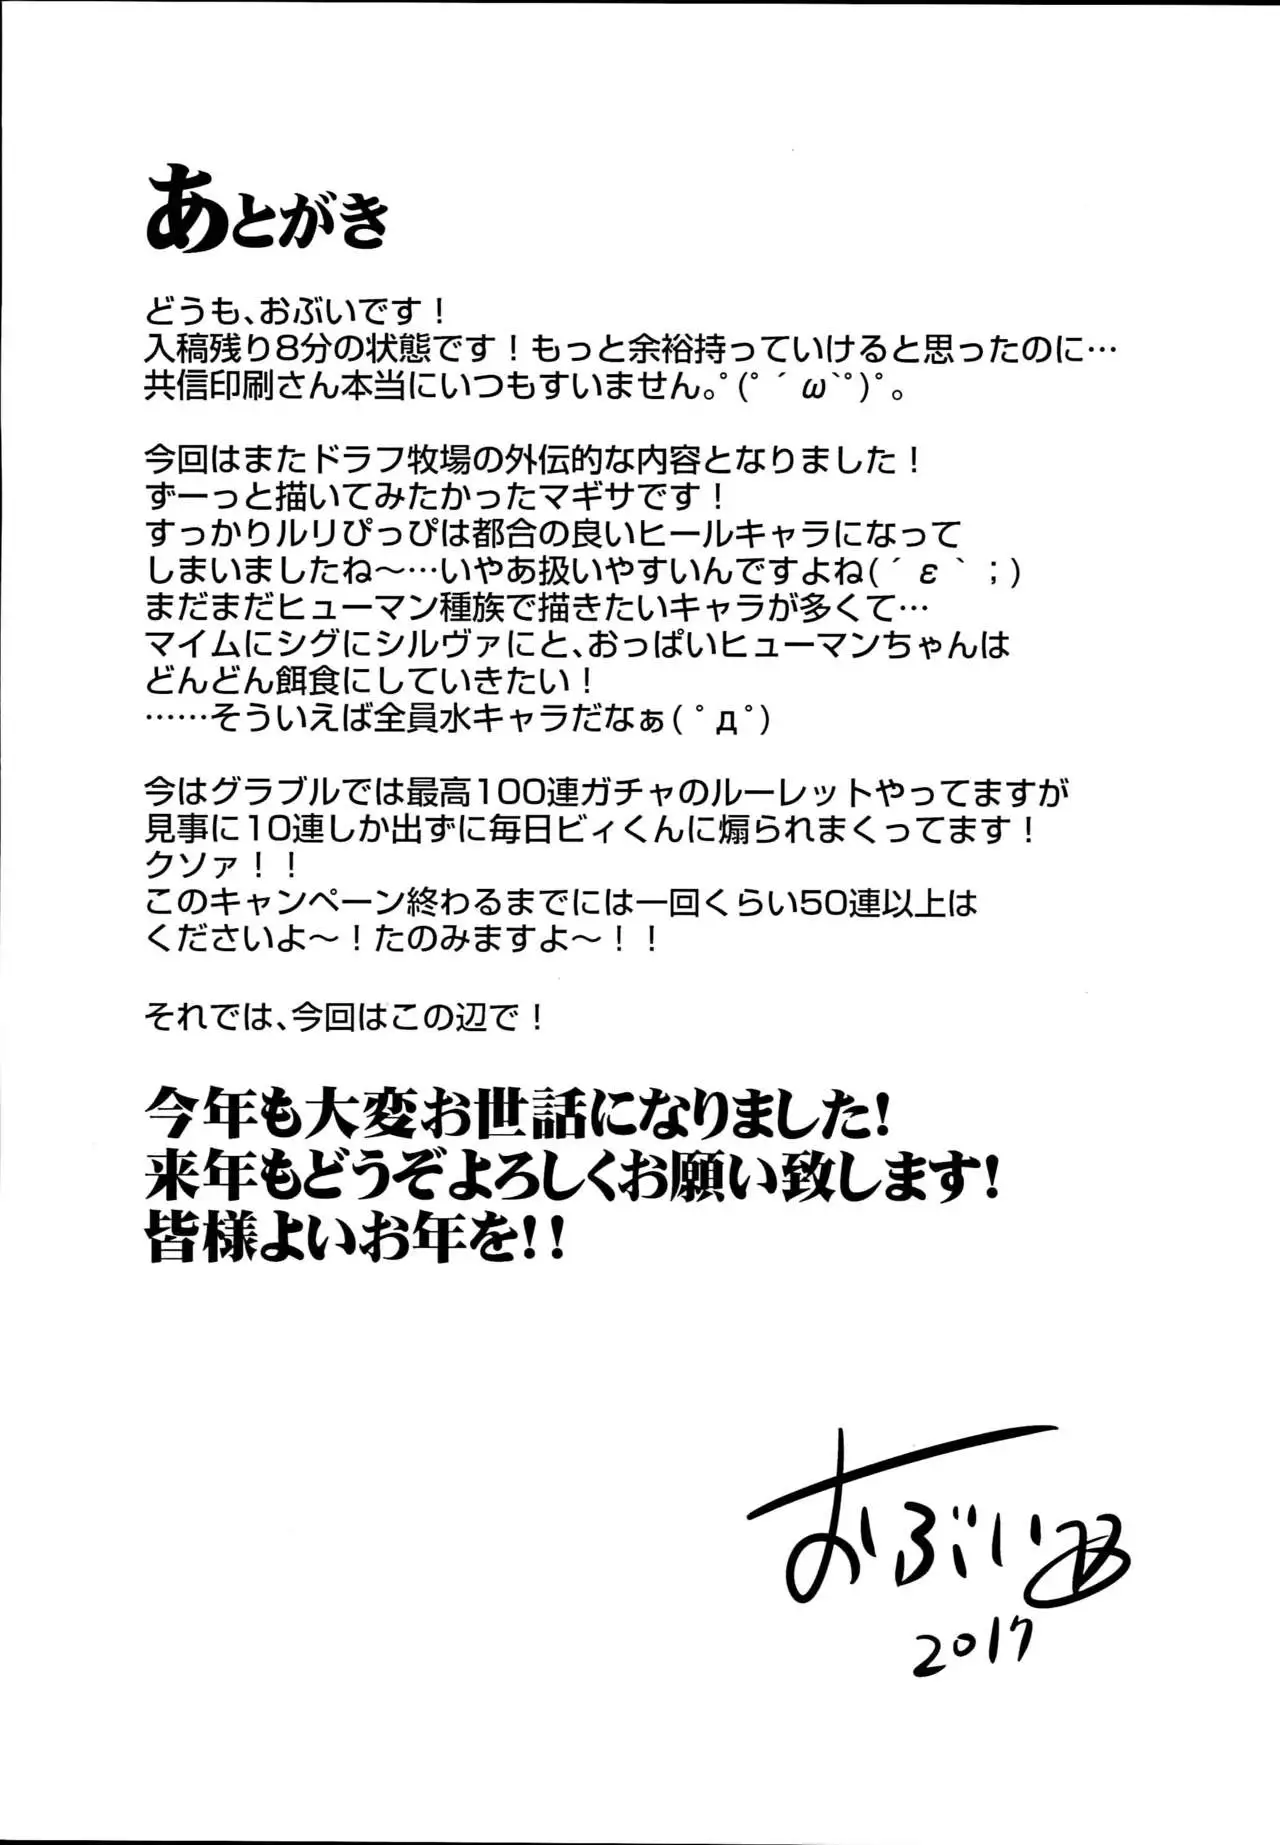 あとがき
どうも、おぶいです！
入稿残り8分の状態です！もっと余裕持っていけると思ったのに…
共信印刷さん本当にいつもすいません。ﾟ(ﾟ´ω`ﾟ)ﾟ。
今回はまたドラフ牧場の外伝的な内容となりました！
ずーっと描いてみたかったマギサです！
すっかりルリぴっぴは都合の良いヒールキャラになって
しまいましたね～…いやあ扱いやすいんですよね(´ε｀；)
まだまだヒューマン種族で描きたいキャラが多くて…
マイムにシグにシルヴァにと、おっぱいヒューマンちゃんは
どんどん餌食にしていきたい！
……そういえば全員水キャラだなぁ(ﾟдﾟ)
今はグラブルでは最高100連ガチャのルーレットやってますが
見事に10連しか出ずに毎日ビィくんに煽られまくってます！
クソァ！！
このキャンペーン終わるまでには一回くらい50連以上は
くださいよ～！たのみますよ～！！
それでは、今回はこの辺で！
今年も大変お世話になりました！
来年もどうぞよろしくお願い致します！
皆様よいお年を！！
おぶい
2017